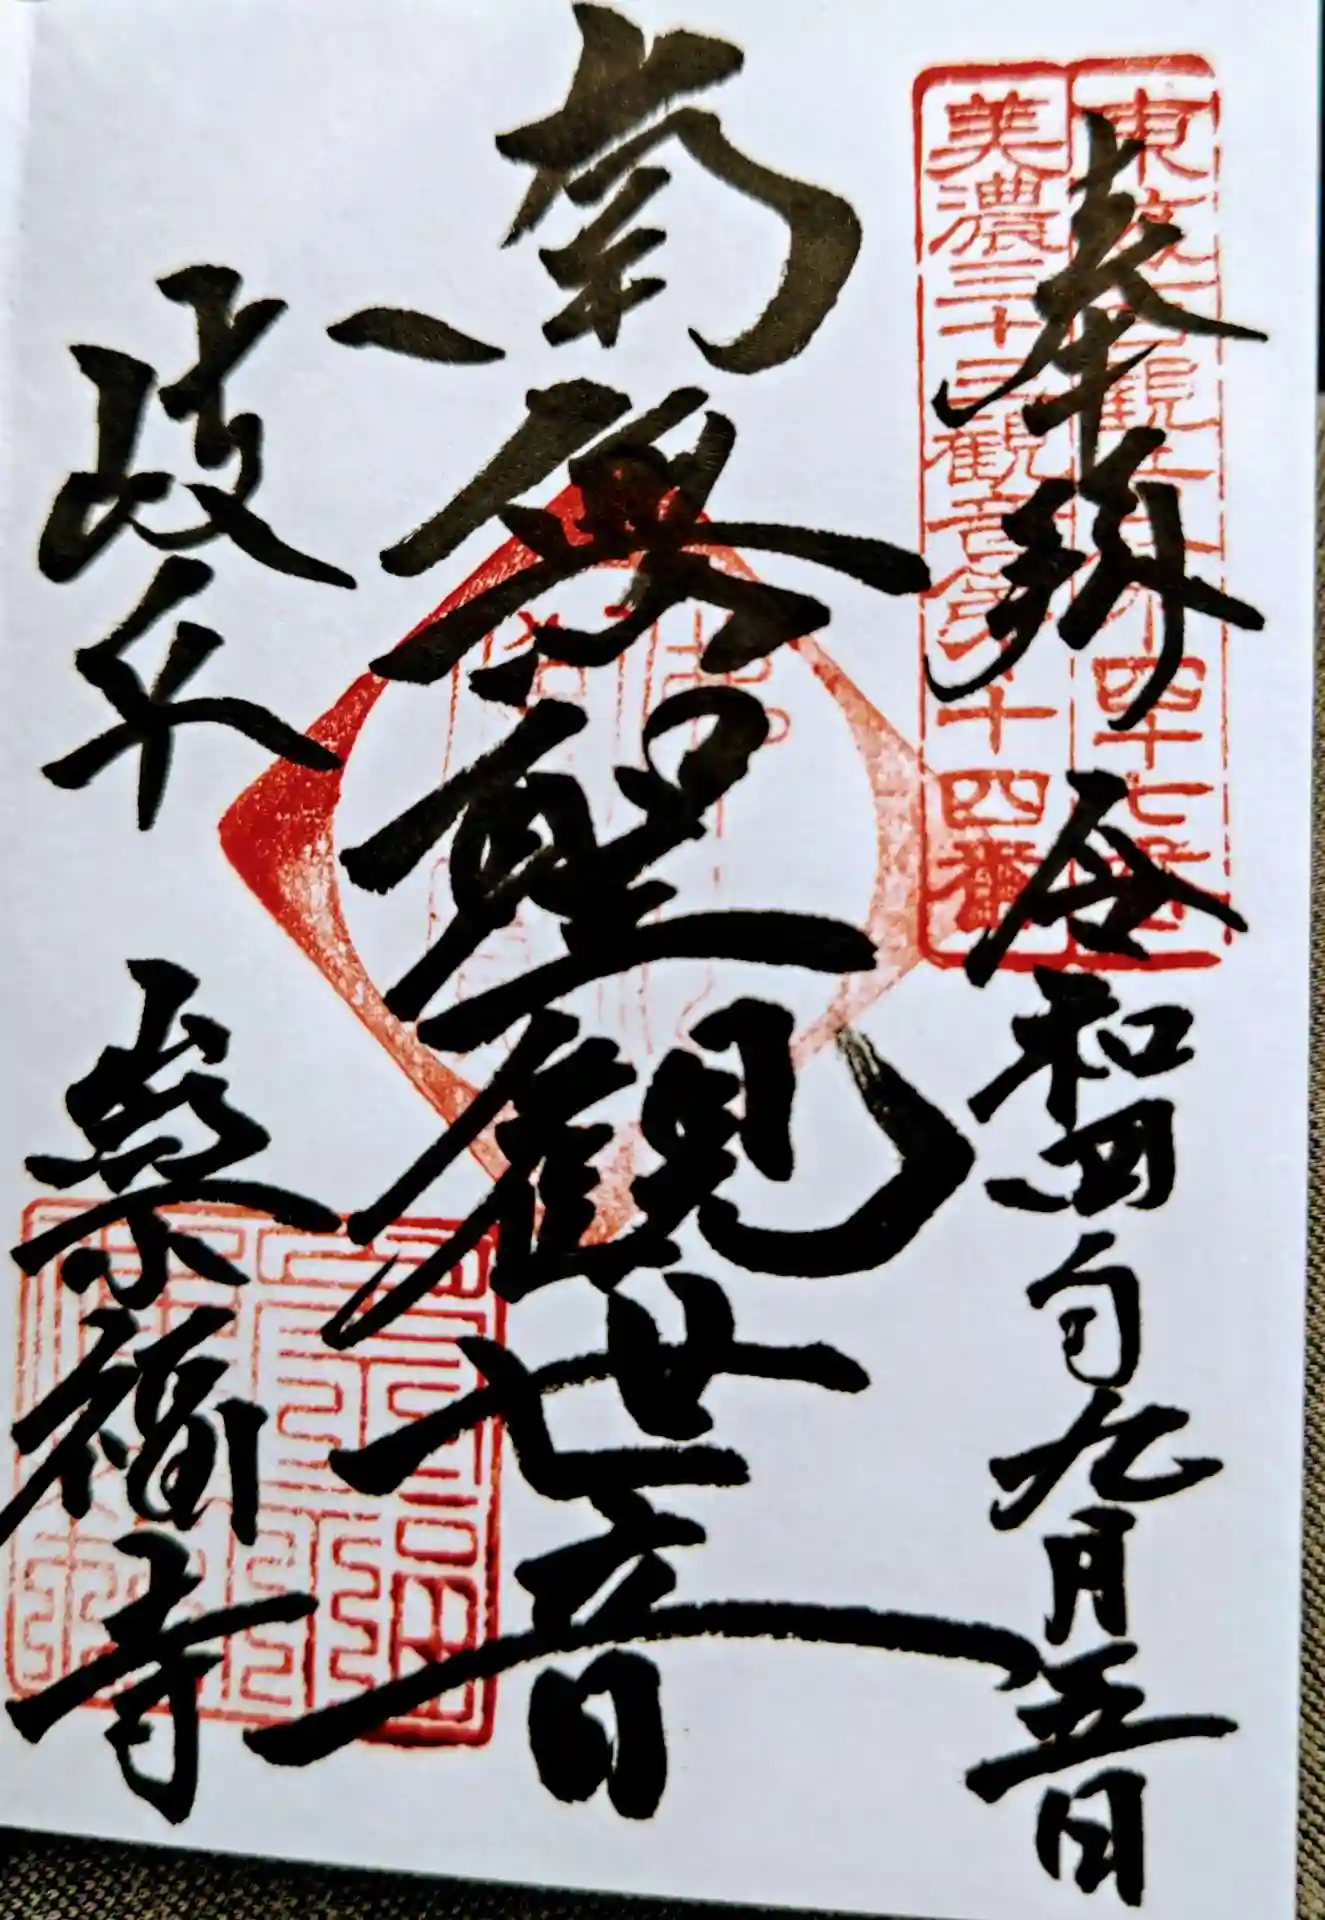 東海百観音第四十七番
美濃三十三観音第十四番
奉拝 令和四年九月五日
南無聖観世音
岐阜 崇福寺